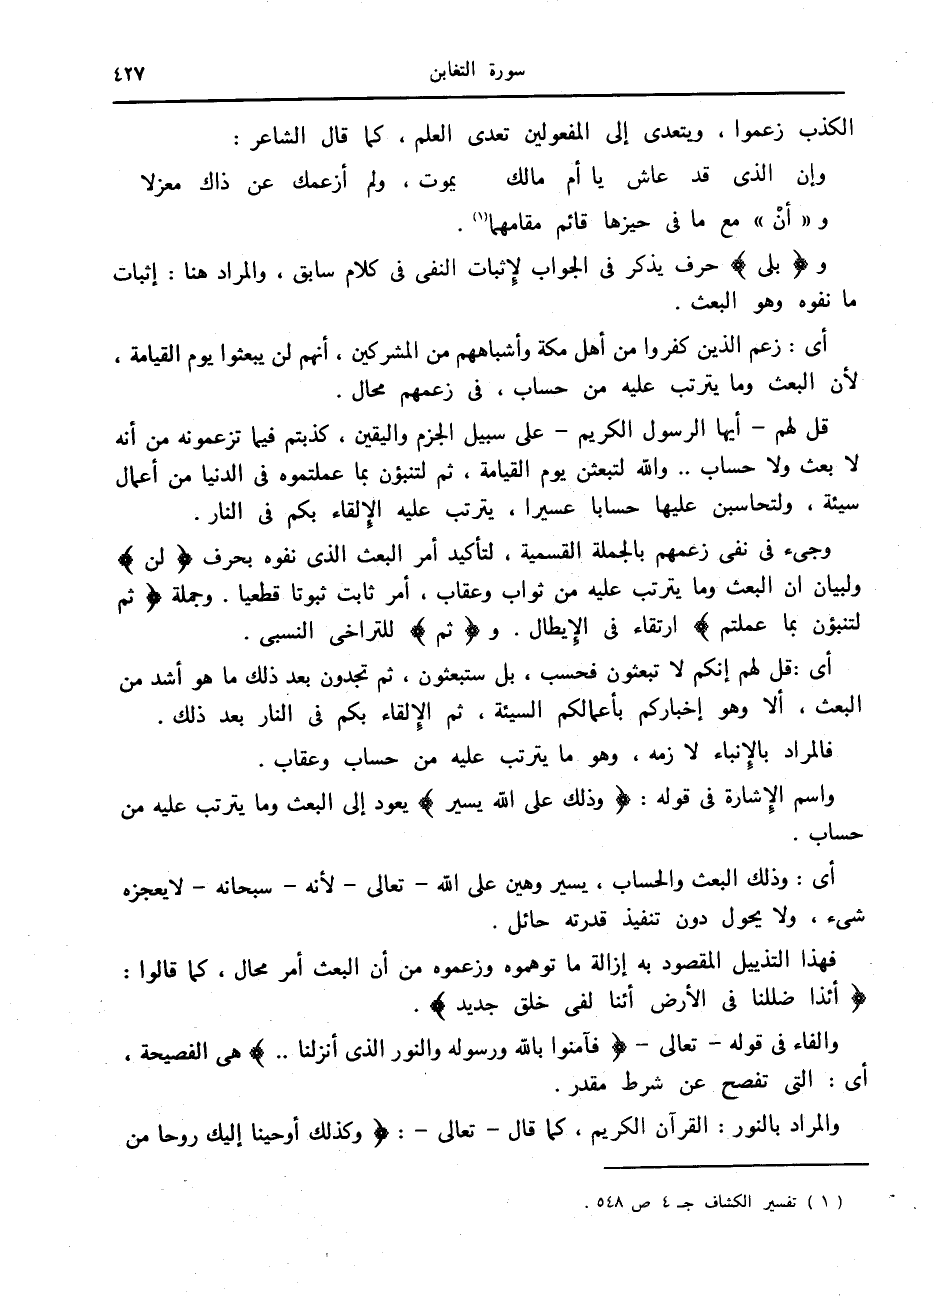 سورة التغابن ٤٢٧
الكذب زعموا ، ويتعدى إلى المفعولين تعدى العلم ، كما قال الشاعر :
وإن الذى قد عاش يا أم مالك يموت ، ولم أزعمك عن ذاك معزلا
و « أنْ » مع ما فى حيزها قائم مقامهما(١) .
و ﴿ بلى ﴾ حرف يذكر فى الجواب لإثبات النفى فى كلام سابق ، والمراد هنا : إثبات
ما نفوه وهو البعث .
أى : زعم الذين كفروا من أهل مكة وأشباههم من المشركين ، أنهم لن يبعثوا يوم القيامة ،
لأن البعث وما يترتب عليه من حساب ، فى زعمهم محال .
قل لهم – أيها الرسول الكريم – على سبيل الجزم واليقين ، كذبتم فيما تزعمونه من أنه
لا بعث ولا حساب .. والله لتبعثن يوم القيامة ، ثم لتنبؤن بما عملتموه فى الدنيا من أعمال
سيئة ، ولتحاسبن عليها حسابا عسيرا ، يترتب عليه الإلقاء بكم فى النار .
وجىء فى نفى زعمهم بالجملة القسمية ، لتأكيد أمر البعث الذى نفوه بحرف ﴿ لن ﴾
ولبيان ان البعث وما يترتب عليه من ثواب وعقاب ، أمر ثابت ثبوتا قطعيا . وجملة ﴿ ثم
لتنبؤن بما عملتم ﴾ ارتقاء فى الإيطال . و ﴿ ثم ﴾ للتراخى النسبى .
أى :قل لهم إنكم لا تبعثون فحسب ، بل ستبعثون ، ثم تجدون بعد ذلك ما هو أشد من
البعث ، ألا وهو إخباركم بأعمالكم السيئة ، ثم الإلقاء بكم فى النار بعد ذلك .
فالمراد بالإنباء لا زمه ، وهو ما يترتب عليه من حساب وعقاب .
واسم الإشارة فى قوله : ﴿ وذلك على الله يسير ﴾ يعود إلى البعث وما يترتب عليه من
حساب .
أى : وذلك البعث والحساب ، يسير وهين على الله – تعالى – لأنه – سبحانه – لايعجزه
شىء ، ولا يحول دون تنفيذ قدرته حائل .
فهذا التذييل المقصود به إزالة ما توهموه وزعموه من أن البعث أمر محال ، كما قالوا :
﴿ أئذا ضللنا فى الأرض أئنا لفى خلق جديد ﴾ .
والفاء فى قوله – تعالى – ﴿ فآمنوا بالله ورسوله والنور الذى أنزلنا .. ﴾ هى الفصيحة ،
أى : التى تفصح عن شرط مقدر .
والمراد بالنور : القرآن الكريم ، كما قال – تعالى – : ﴿ وكذلك أوحينا إليك روحا من
( ١ ) تفسير الكشاف جـ ٤ ص ٥٤٨ .